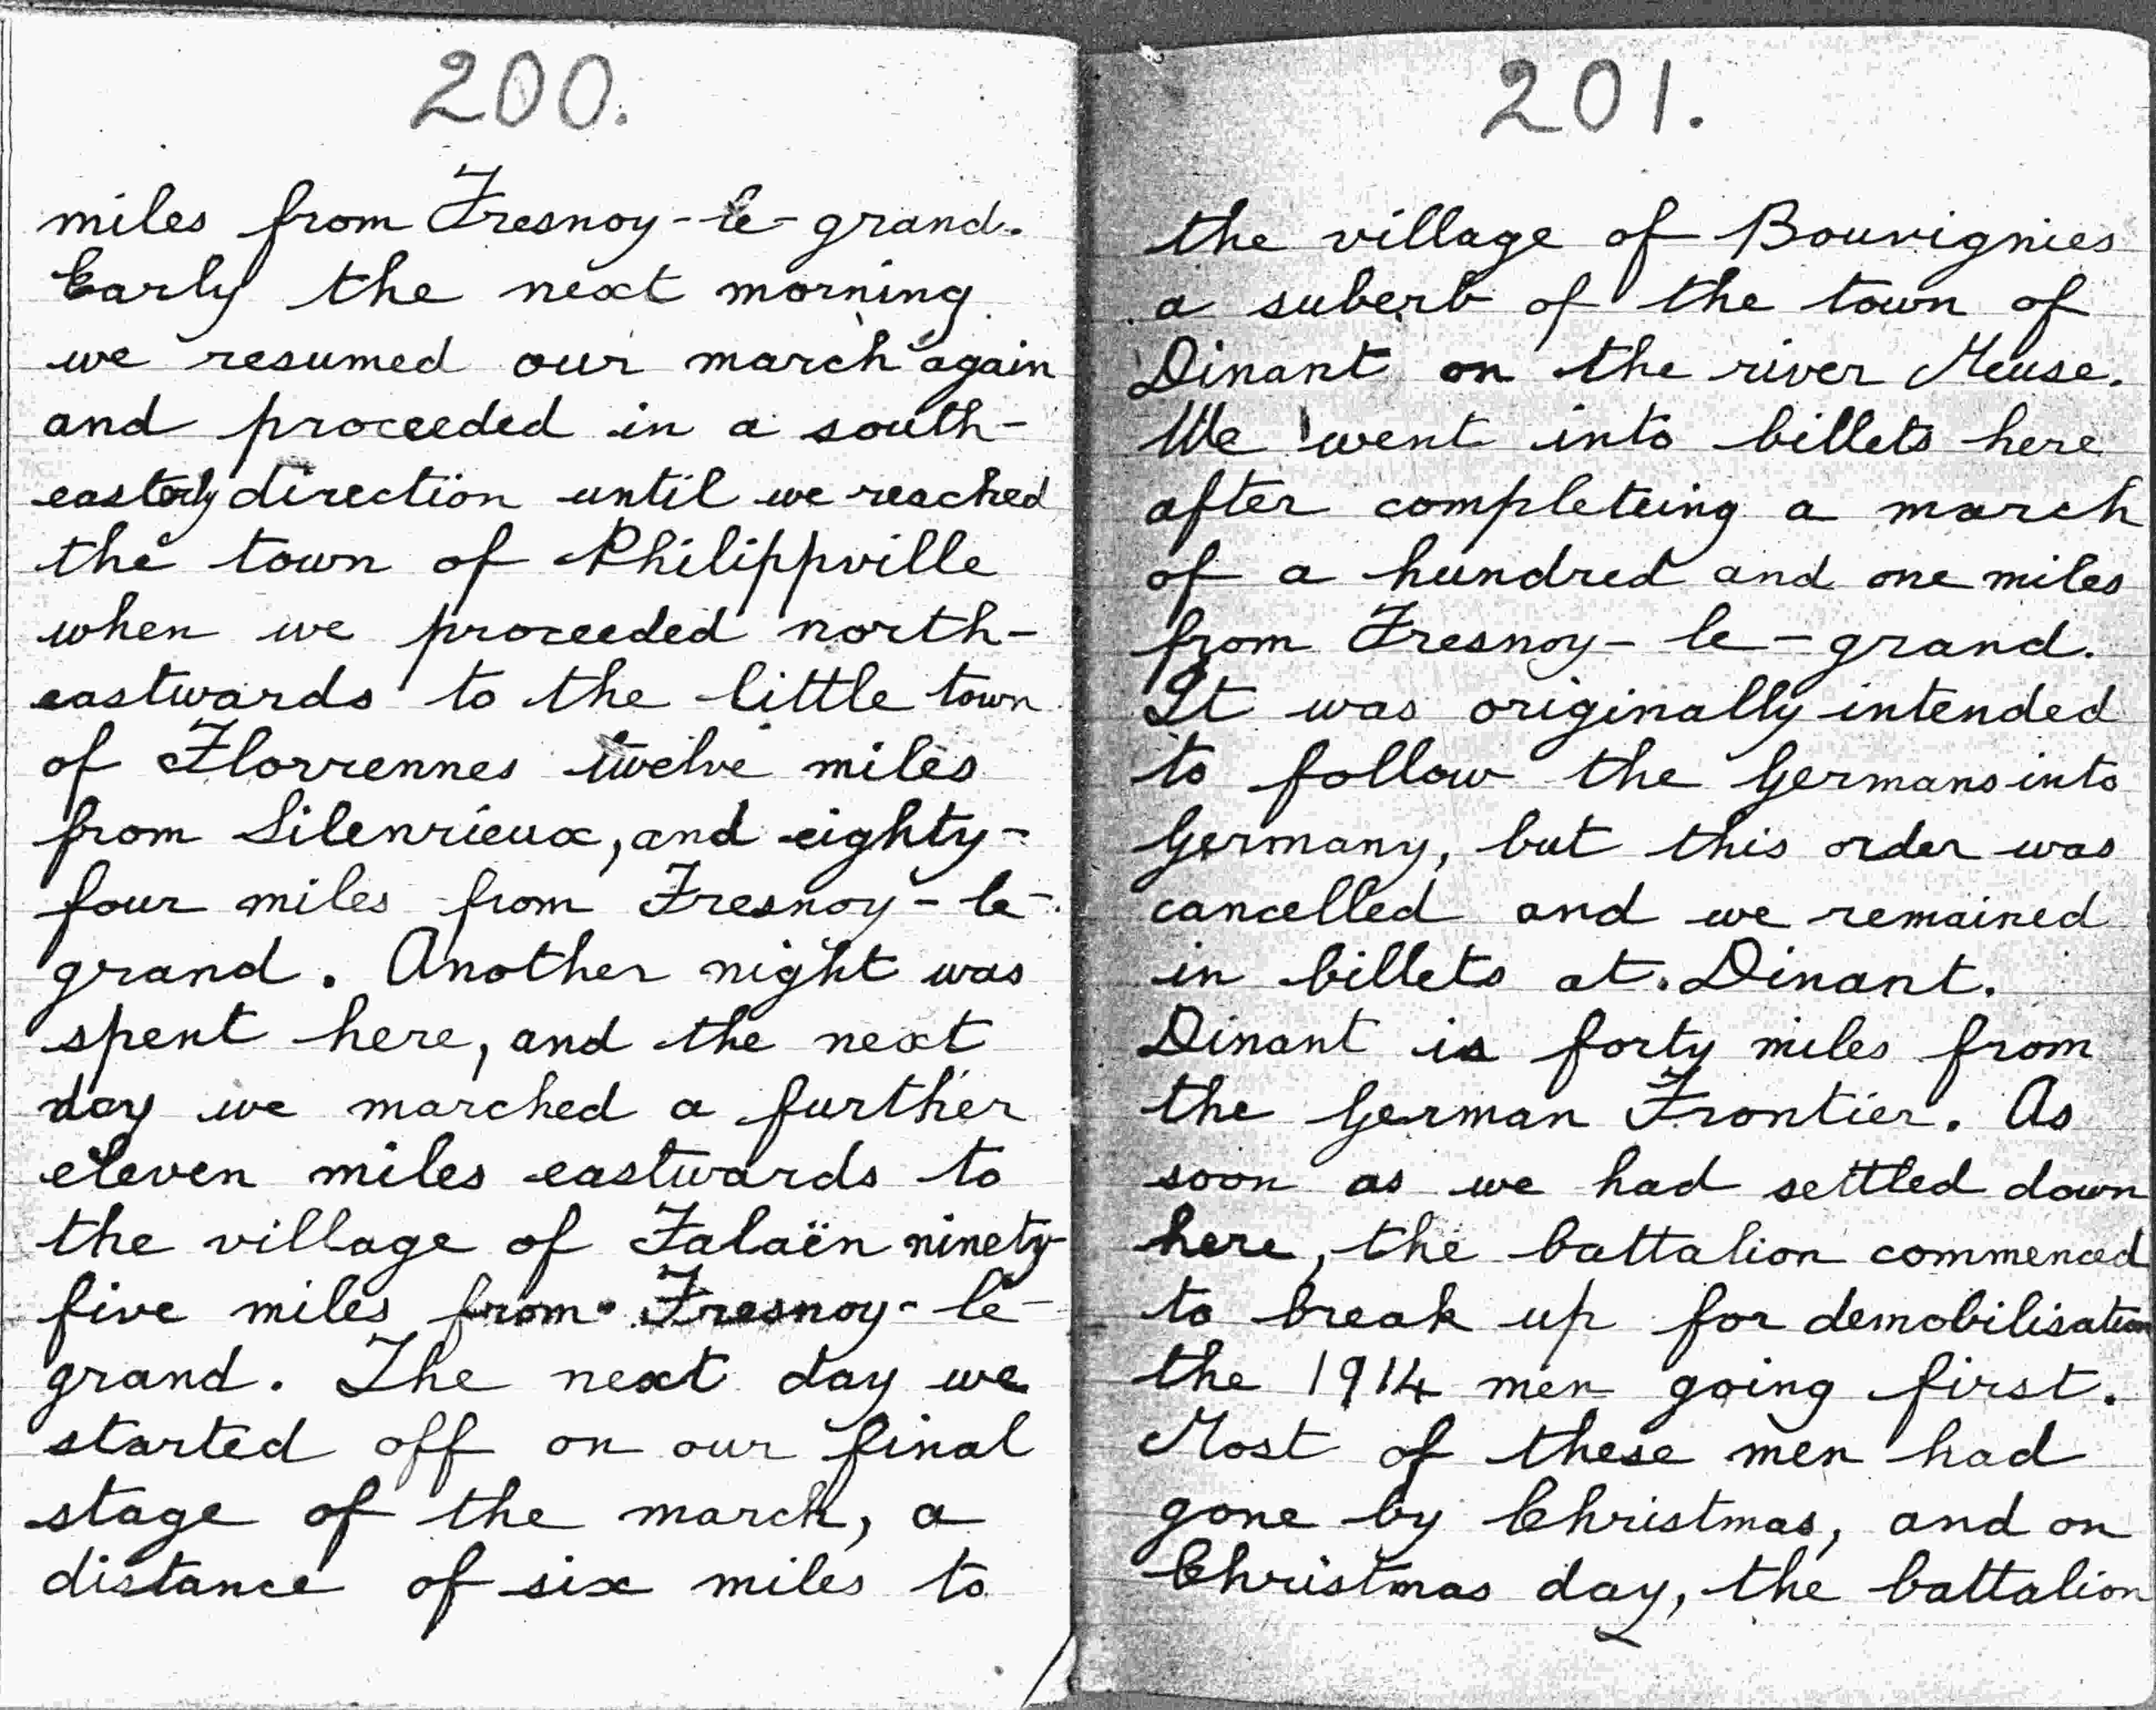 200.
miles from Fresnoy-le-grand.
Early the next morning
we resumed our march again
and proceeded in a south-
easterly direction until we reached
the town of Philippville
when we proceeded north-
eastwards to the little town
of Florrennes twelve miles
from Silenrieux, and eighty-
four miles from Fresnoy-le-
grand. Another night was
spent here, and the next
day we marched a further
eleven miles eastwards to
the village of Falaën ninety-
five miles from Fresnoy-le-
grand. The next day we
started off on our final
stage of the march, a
distance of six miles to
201.
the village of Bouvignies
a suberb of the town of
Dinant on the river Meuse.
We went into billets here
after completeing a march
of a hundred and one miles
from Fresnoy-le-grand.
It was originally intended
to follow the Germans into
Germany, but this order was
cancelled and we remained
in billets at Dinant.
Dinant is forty miles from
the German Frontier. As
soon as we had settled down
here, the battalion commenced
to break up for demobilisation
the 1914 men going first.
Most of these men had
gone by Christmas, and on
Christmas day, the battalion